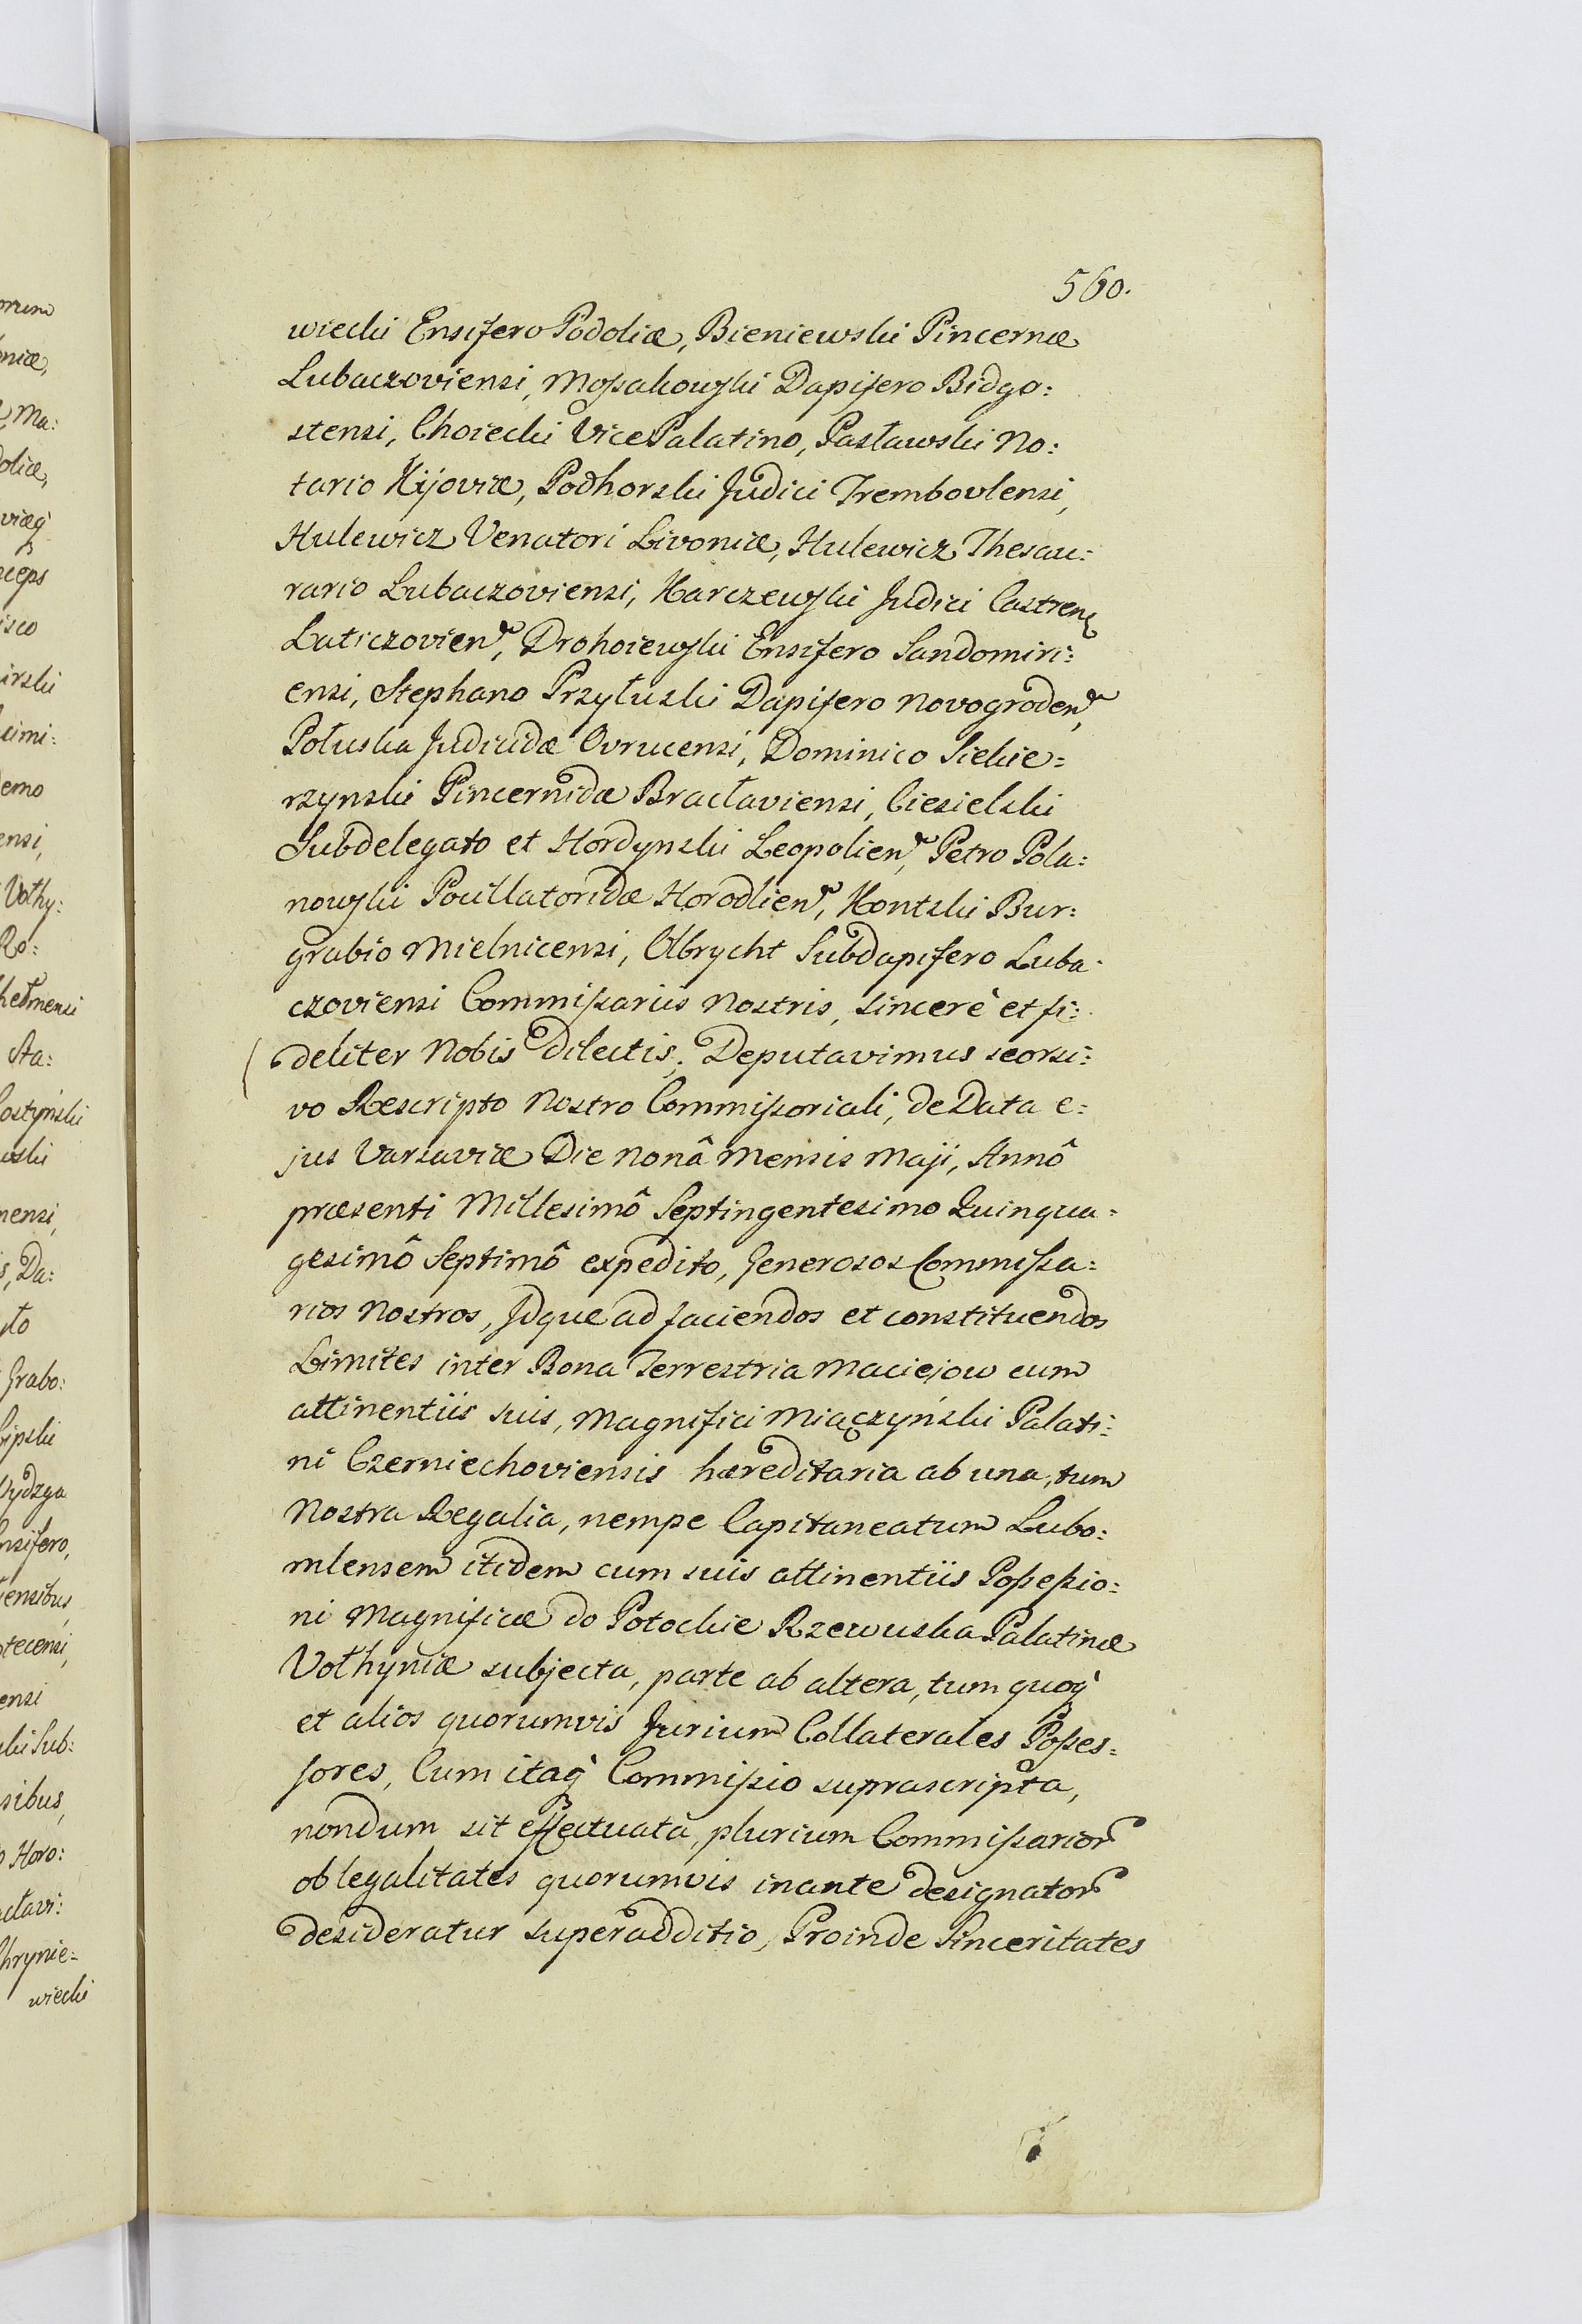 560.
wiecki Ensifero Podoliæ, Bieniewski Pincernæ
Lubaczoviensi, Mossakowski Dapifero Bidgo:
stensi, Choiecki VicePalatino, Pasławski No:
tario Kijoviæ, Podhorski Judici Trembovlensi,
Hulewicz Venatori Livoniæ, Hulewicz Thesau:
rario Lubaczoviensi, Karczewski Judici Castren
Laticzovien, Drohoiewski Ensifero Sandomiri:
ensi, Stephano Przyłuski Dapifero Novogroden,
Połuska Judicidæ Ovrucensi, Dominico Siekie:
rzynski Pincernidæ Bracłaviensi, Ciesielski
Subdelegato et Hordynski Leopolien, Petro Pola:
nowski Pocillatoridæ Horodlien, Kontski Bur:
grabio Mielnicensi, Olbrycht Subdapifero Luba:
czoviensi Commissariis Nostris, sincerè et fi:
deliter Nobis Dilectis, Deputavimus seorsi:
vo Rescripto Nostro Commissoriali, de Data e:
jus Varsaviæ Die Nonâ Mensis Maji, Annô
præsenti Millesimô Septingentesimo Quinqua:
gesimô Septimô expedito, Generosos Commissa:
rios Nostros, Idque ad faciendos et constituendos
Limites inter Bona Terrestria Maciejow cum
attinentiis suis, Magnifici Miączyński Palati:
ni Czerniechoviensis hæreditaria ab una, tum
Nostra Regalia, nempe Capitaneatum Lubo:
mlensem itidem cum suis attinentiis Possessio:
ni Magnificæ do Potockie Rzewuska Palatinæ
Vołhyniæ subjecta, parte ab altera, tum quoq̀
et alios quorumvis Jurium Collaterales Posses:
sores, Cum itaq̀ Commissio suprascripta,
nondum sit effectuata, plurium Commissarior
ob legalitates quorumvis inante designator
desideratur superadditio, Proinde Sinceritates